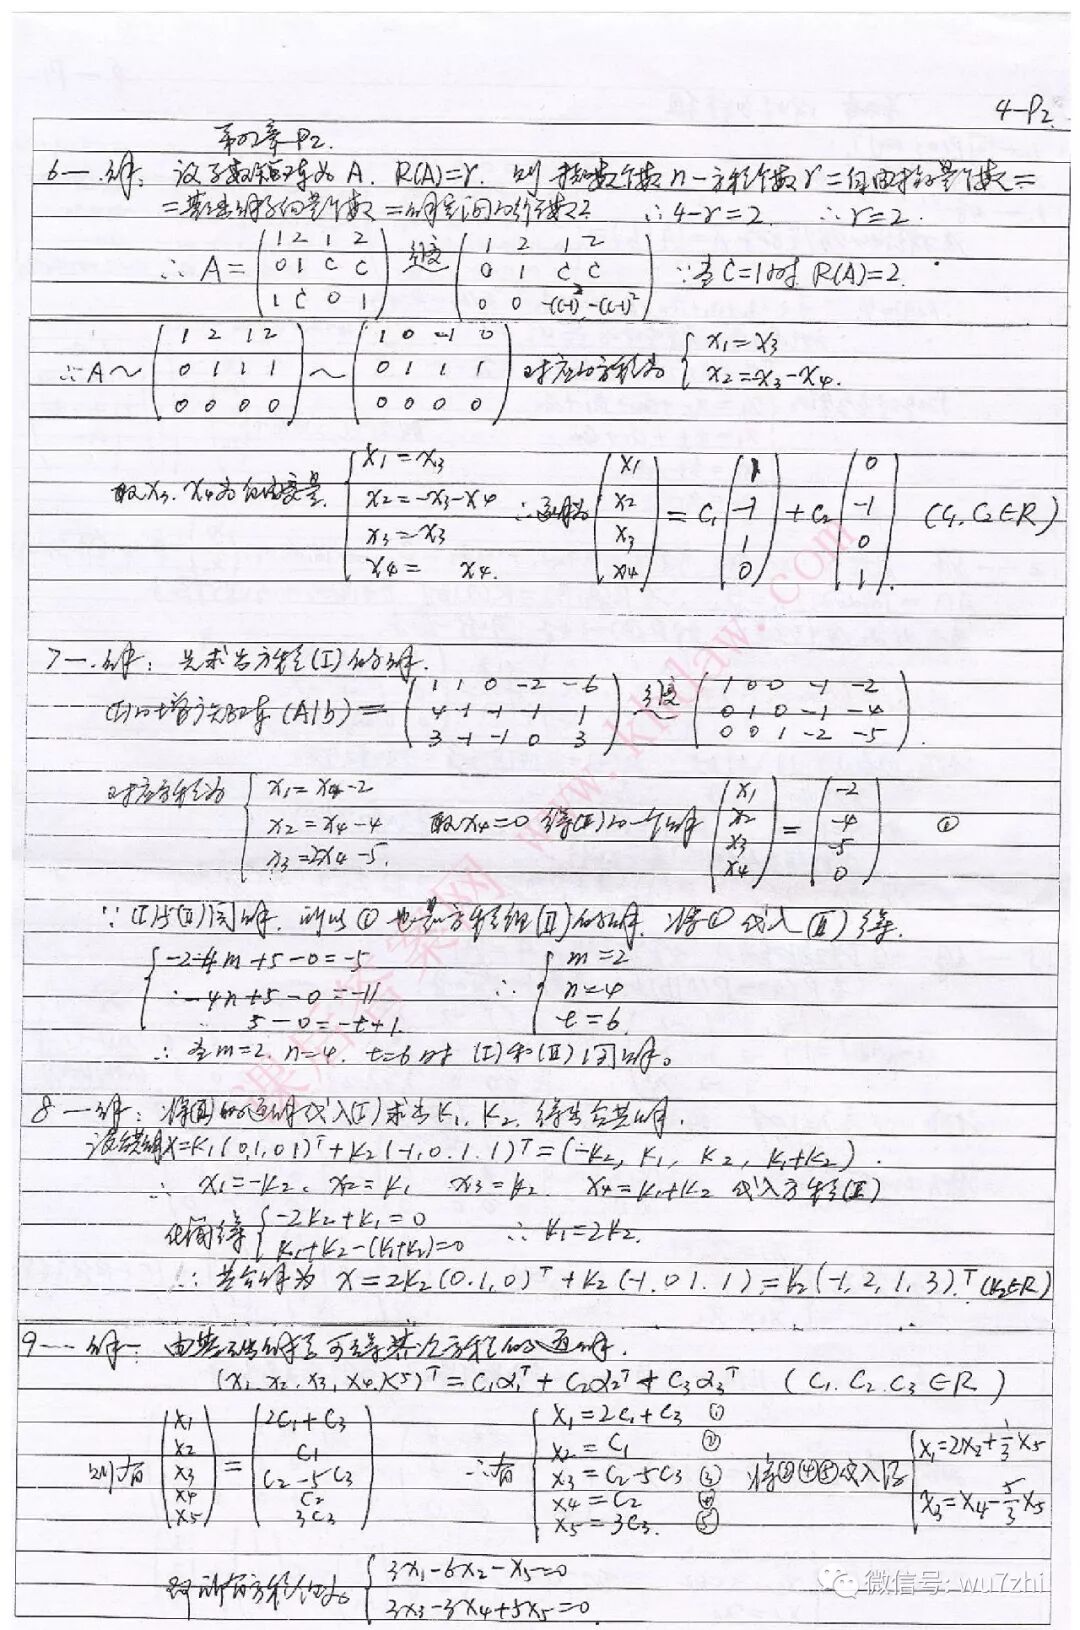 4-P2.
第四章-P2.
6一.解: 设系数矩阵为 A. R(A)=r. 则 未知数个数 n-方程个数 r=自由未知量个数=
=基础解系向量个数=解空间的维数2 ∴4-r=2. ∴r=2.
∴A= (1 2 1 2; 0 1 C C; 1 C 0 1) 初变 (1 2 1 2; 0 1 C C; 0 0 -(C-1)² -(C-1)²) ∵当C=1时 R(A)=2.
∴A~ (1 2 1 2; 0 1 1 1; 0 0 0 0) ~ (1 0 -1 0; 0 1 1 1; 0 0 0 0) 对应的方程为 { x1=x3; x2=-x3-x4.
取x3.x4为自由变量. { x1=x3; x2=-x3-x4; x3=x3; x4= x4. ∴通解为 (x1; x2; x3; x4) =C1 (1; -1; 1; 0) +C2 (0; -1; 0; 1) (C1, C2∈R)
7一.解: 先求出方程(I)的解.
(I)的增广矩阵(A|b)= (1 1 0 -2 -6; 4 -1 -1 -1 1; 3 -1 -1 0 3) 初变 (1 0 0 -1 -2; 0 1 0 -1 -4; 0 0 1 -2 -5).
对应方程为 { x1=x4-2; x2=x4-4; x3=2x4-5. 取x4=0 得(I)的一个解 (x1; x2; x3; x4) = (-2; -4; -5; 0) ①
∵(I)与(II)同解. 所以①也是方程组(II)的解. 将①代入(II)得.
{ -2-4m+5-0=-5; -4n+5-0=-11; 5-0=-t+1. ∴ { m=2; n=4; t=6.
∴当m=2. n=4. t=6时 (I)和(II)同解。
8一解: 将(II)的通解代入(I)求出K1, K2. 得出公共解.
设公共解X=K1(0,1,0 1)ᵀ+K2(-1,0.1.1)ᵀ=(-K2, K1, K2, K1+K2).
∴ x1=-K2. x2=K1 x3=K2. x4=K1+K2 代入方程(I)
化简得 { -2K2+K1=0; K1+K2-(K1+K2)=0 ∴ K1=2K2.
∴ 公共解为 x=2K2(0.1,0)ᵀ+K2(-1.0 1.1)=K2(-1,2,1,3).ᵀ(K2∈R)
9一.解一 由基础解系可得齐次方程的通解.
(x1 x2. x3, x4.x5)ᵀ=C1α1ᵀ+C2α2ᵀ+C3α3ᵀ (C1. C2. C3∈R)
则有 (x1; x2; x3; x4; x5) = (2C1+C3; C1; C2-5C3; C2; 3C3) ∴有 { x1=2C1+C3 ①; x2=C1 ②; x3=C2-5C3 ③; x4=C2 ④; x5=3C3. ⑤ 将②④⑤代入得 { x1=2x2+1/3x5; x3=x4-5/3x5
即所有方程组为 { 3x1-6x2-x5=0; 3x3-3x4+5x5=0.
课后答案网 www.khdaw.com
微信号: wu7zhi